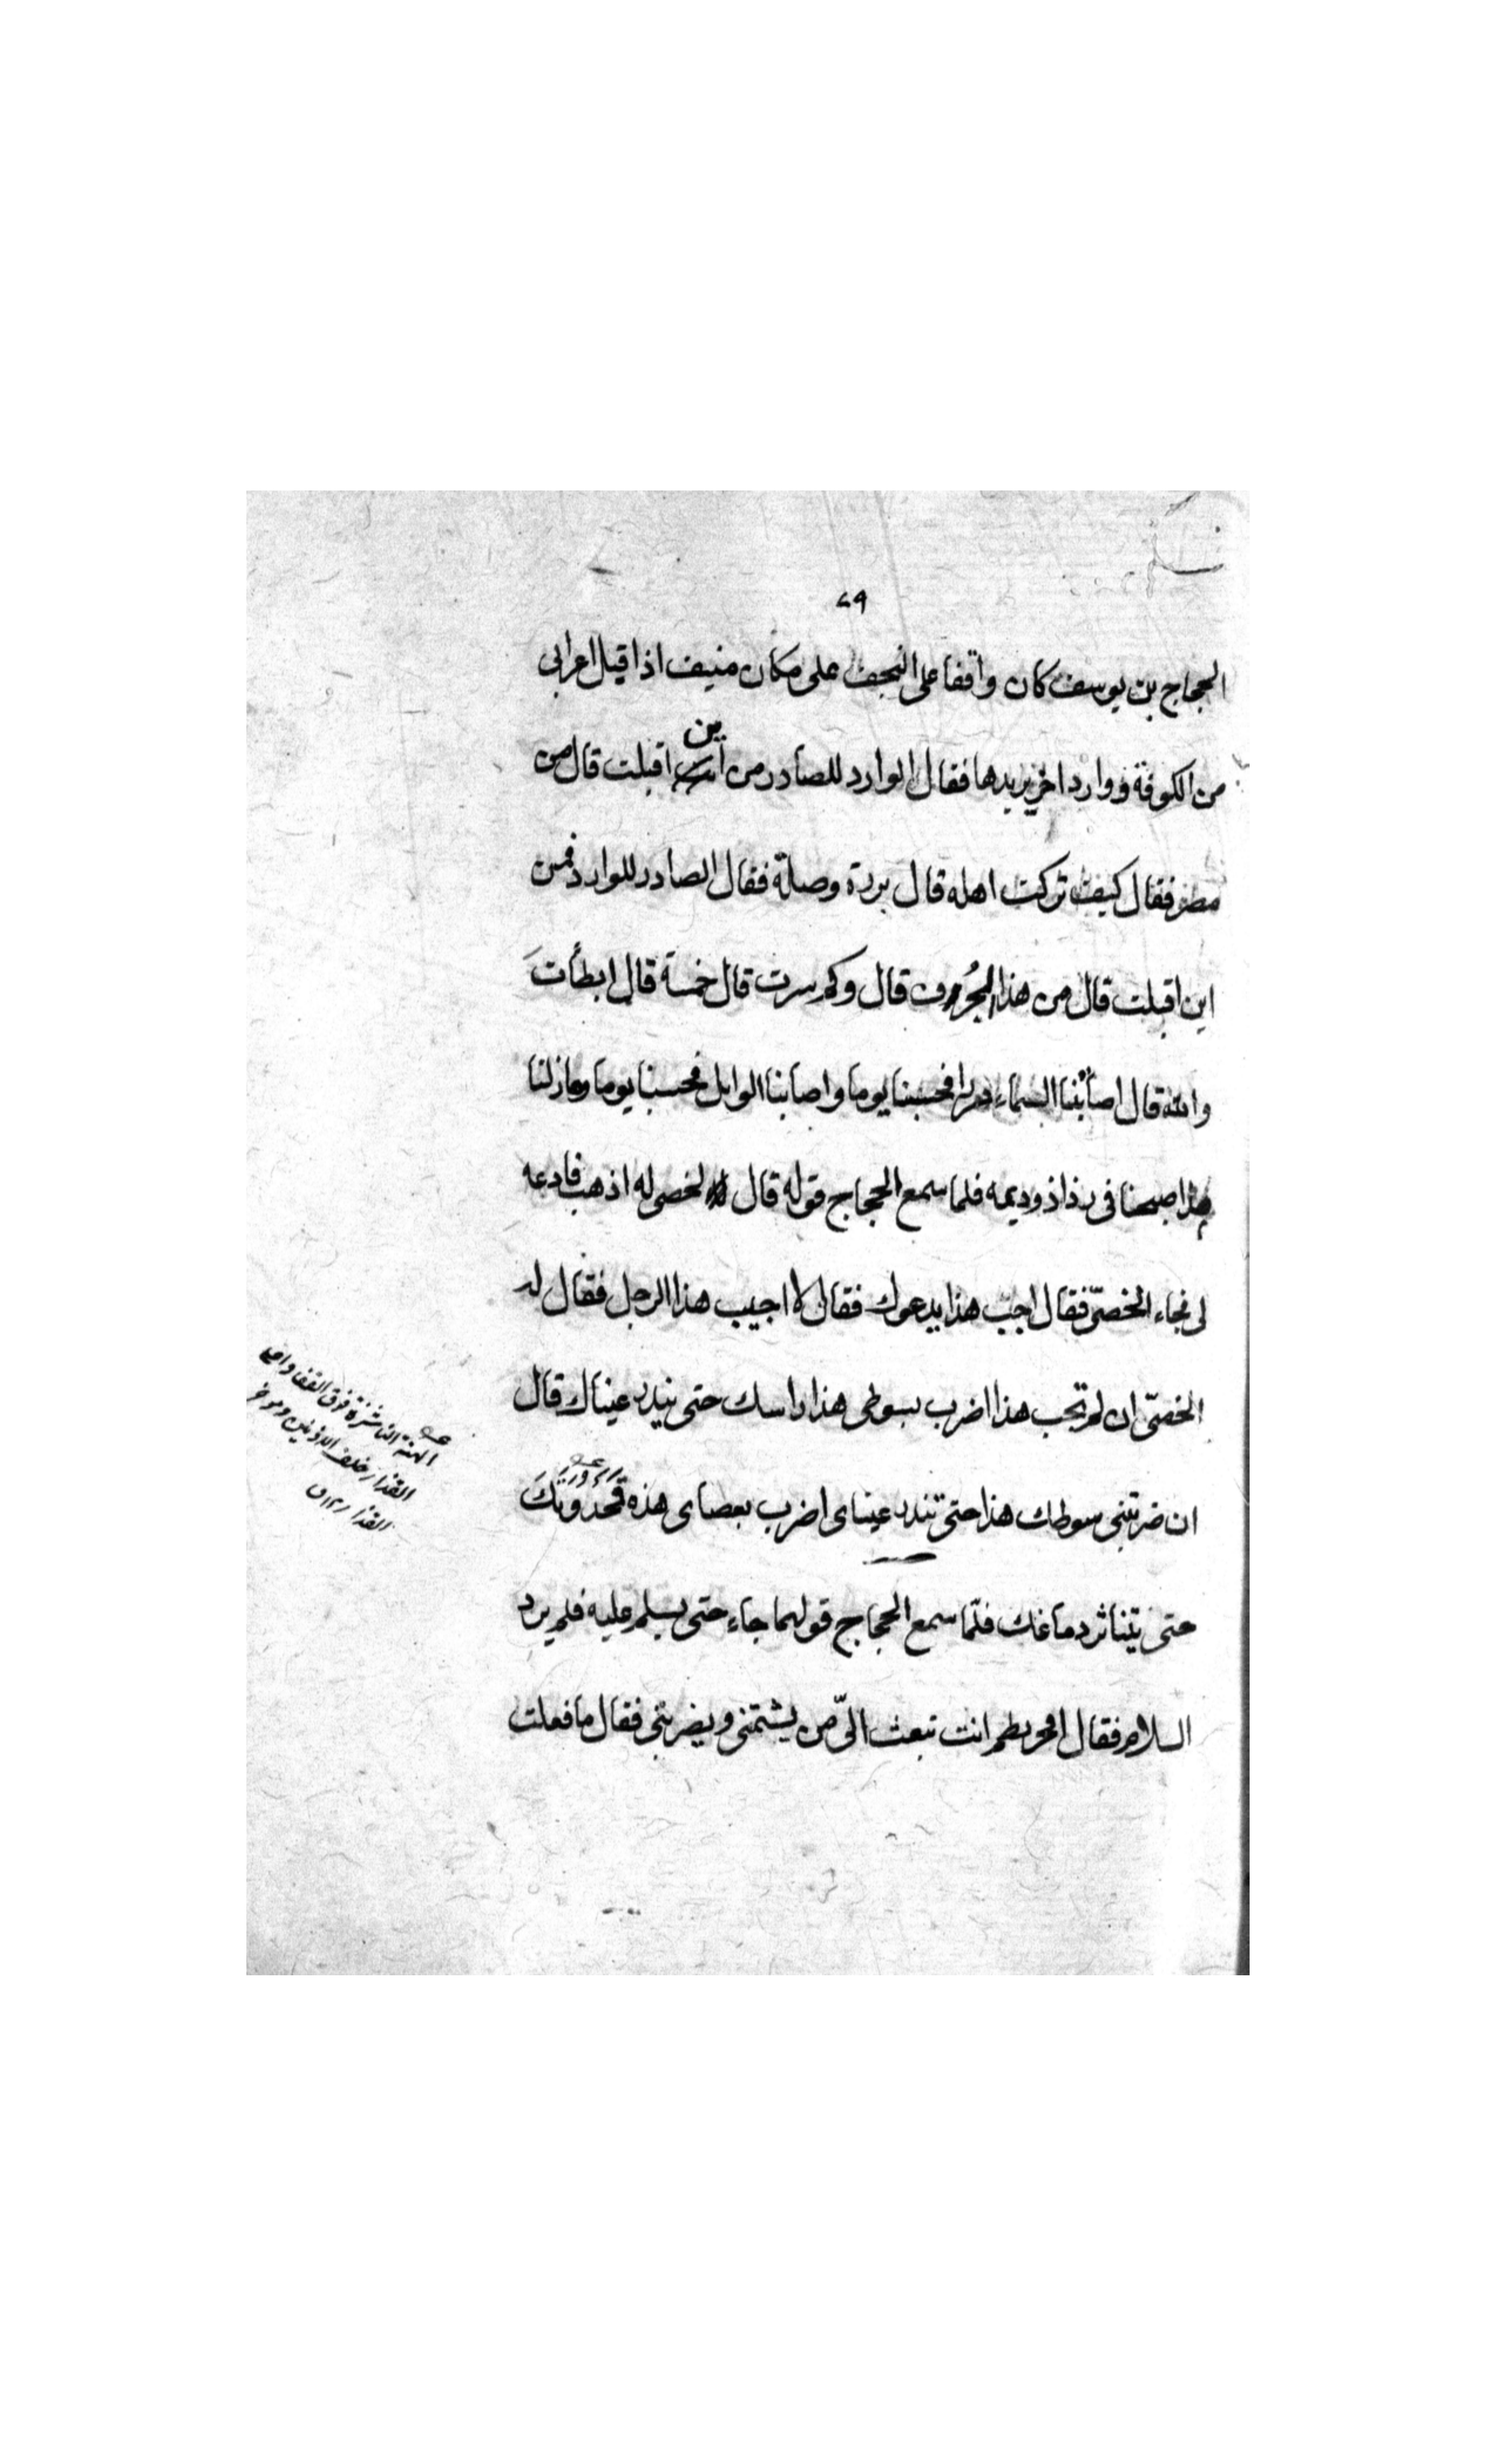 ٤٩
الحجاج بن يوسف كان واقفا على النجف على مكان منيف اذا قيل اعرابى
من الكوفة ووارد اخر يريدها فقال الوارد للصادر من اين اقبلت قال من
مضر فقال كيف تركت اهله قال بردة وصلة فقال الصادر للوارد فمن
اين اقبلت قال من هذا الجُرف قال وكم سرت قال خمسة قال ابطأتَ
والله قال اصابتنا السماء فحسبنا يوما واصابنا الوابل فحسبنا يوما ومازلنا
اصبحنا فى رذاذ وديمه فلما سمع الحجاج قوله قال لخصى له اذهب فادعه
لى فجاء الخصىّ فقال اجب هذا يدعوك فقال لا اجيب هذا الرجل فقال له
الخصىّ ان لم تجب هذا اضرب بسوطى هذا راسك حتى تندر عيناك قال
ان ضربتنى سوطك هذا حتى تندر عيناى اضرب بعصاى هذه قَمَحْدُوَتَكَ
حتى يتناثر دماغك فلمّا سمع الحجاج قولهما جاء حتى يسلم عليه فلم يرد
السلام فقال انت تبعث الىّ من يشتمنى ويضربنى فقال ما فعلت
الهنة الناشزة فوق القفا واعلى
القذال خلف الاذنين وموخر
القذال ق